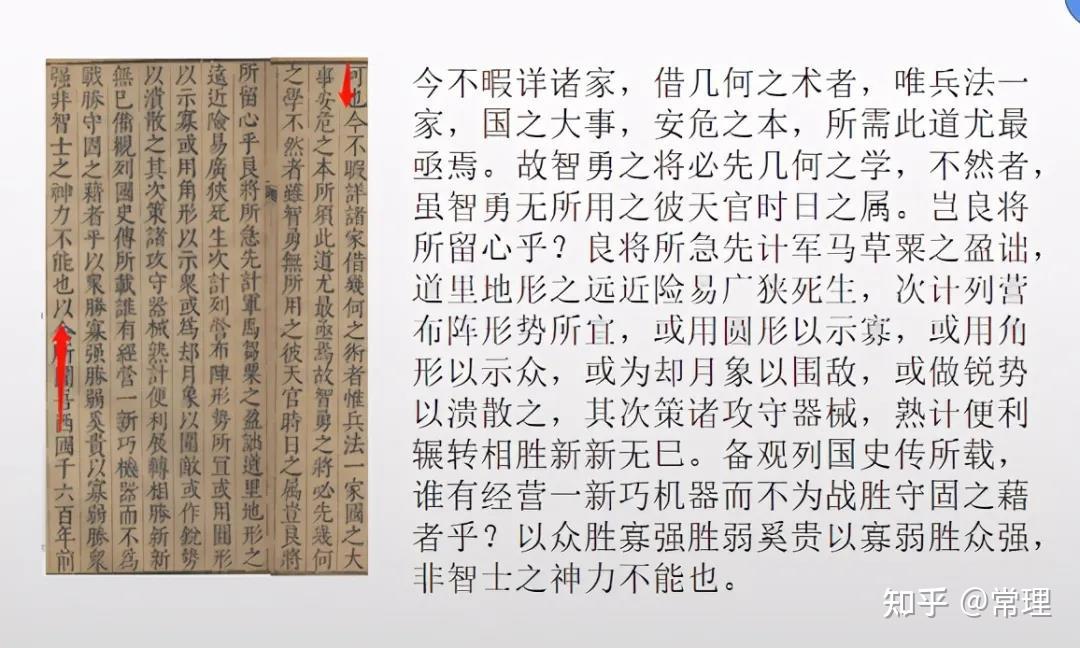 也今不暇詳諸家借幾何之術者惟兵法一家國之大
事安危之本所須此道尤最亟焉故智勇之將必先幾何
之學不然者雖智勇無所用之彼天官時日之属豈良將
所留心乎良將所急先計軍馬芻粟之盈詘道里地形之
遠近險易廣狹死生次計列營布陣形勢所宜或用圓形
以示寡或用角形以示衆或爲却月象以圍敵或作銳勢
以潰散之其次策諸攻守器械熟計便利展轉相勝新新
無已備觀列國史傳所載誰有經營一新巧機器而不爲
戰勝守固之藉者乎以衆勝寡强勝弱奚貴以寡弱勝衆
强非智士之神力不能也以今所西國千六百年前
今不暇详诸家，借几何之术者，唯兵法一
家，国之大事，安危之本，所需此道尤最
亟焉。故智勇之将必先几何之学，不然者，
虽智勇无所用之彼天官时日之属。岂良将
所留心乎？良将所急先计军马草粟之盈诎，
道里地形之远近险易广狄死生，次计列营
布阵形势所宜，或用圆形以示寡，或用角
形以示众，或为却月象以围敌，或做锐势
以溃散之，其次策诸攻守器械，熟计便利
辗转相胜新新无巳。备观列国史传所载，
谁有经营一新巧机器而不为战胜守固之藉
者乎？以众胜寡强胜弱奚贵以寡弱胜众强，
非智士之神力不能也。
知乎 @常理